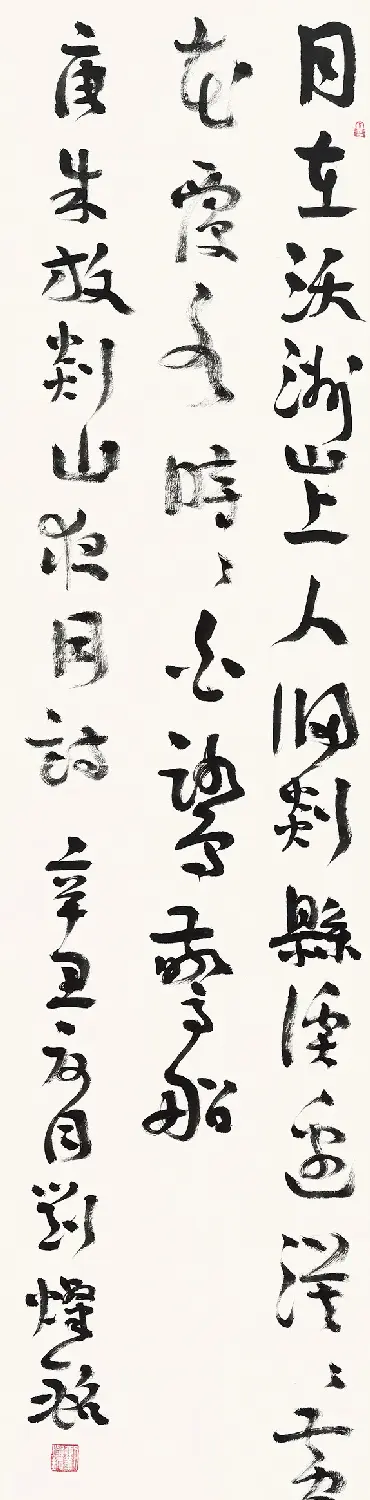 月在沃洲山上人歸剡縣溪邊漠〻黃
花覆水時〻白鷺驚船
唐朱放剡山夜月詩 辛丑月劉燦銘